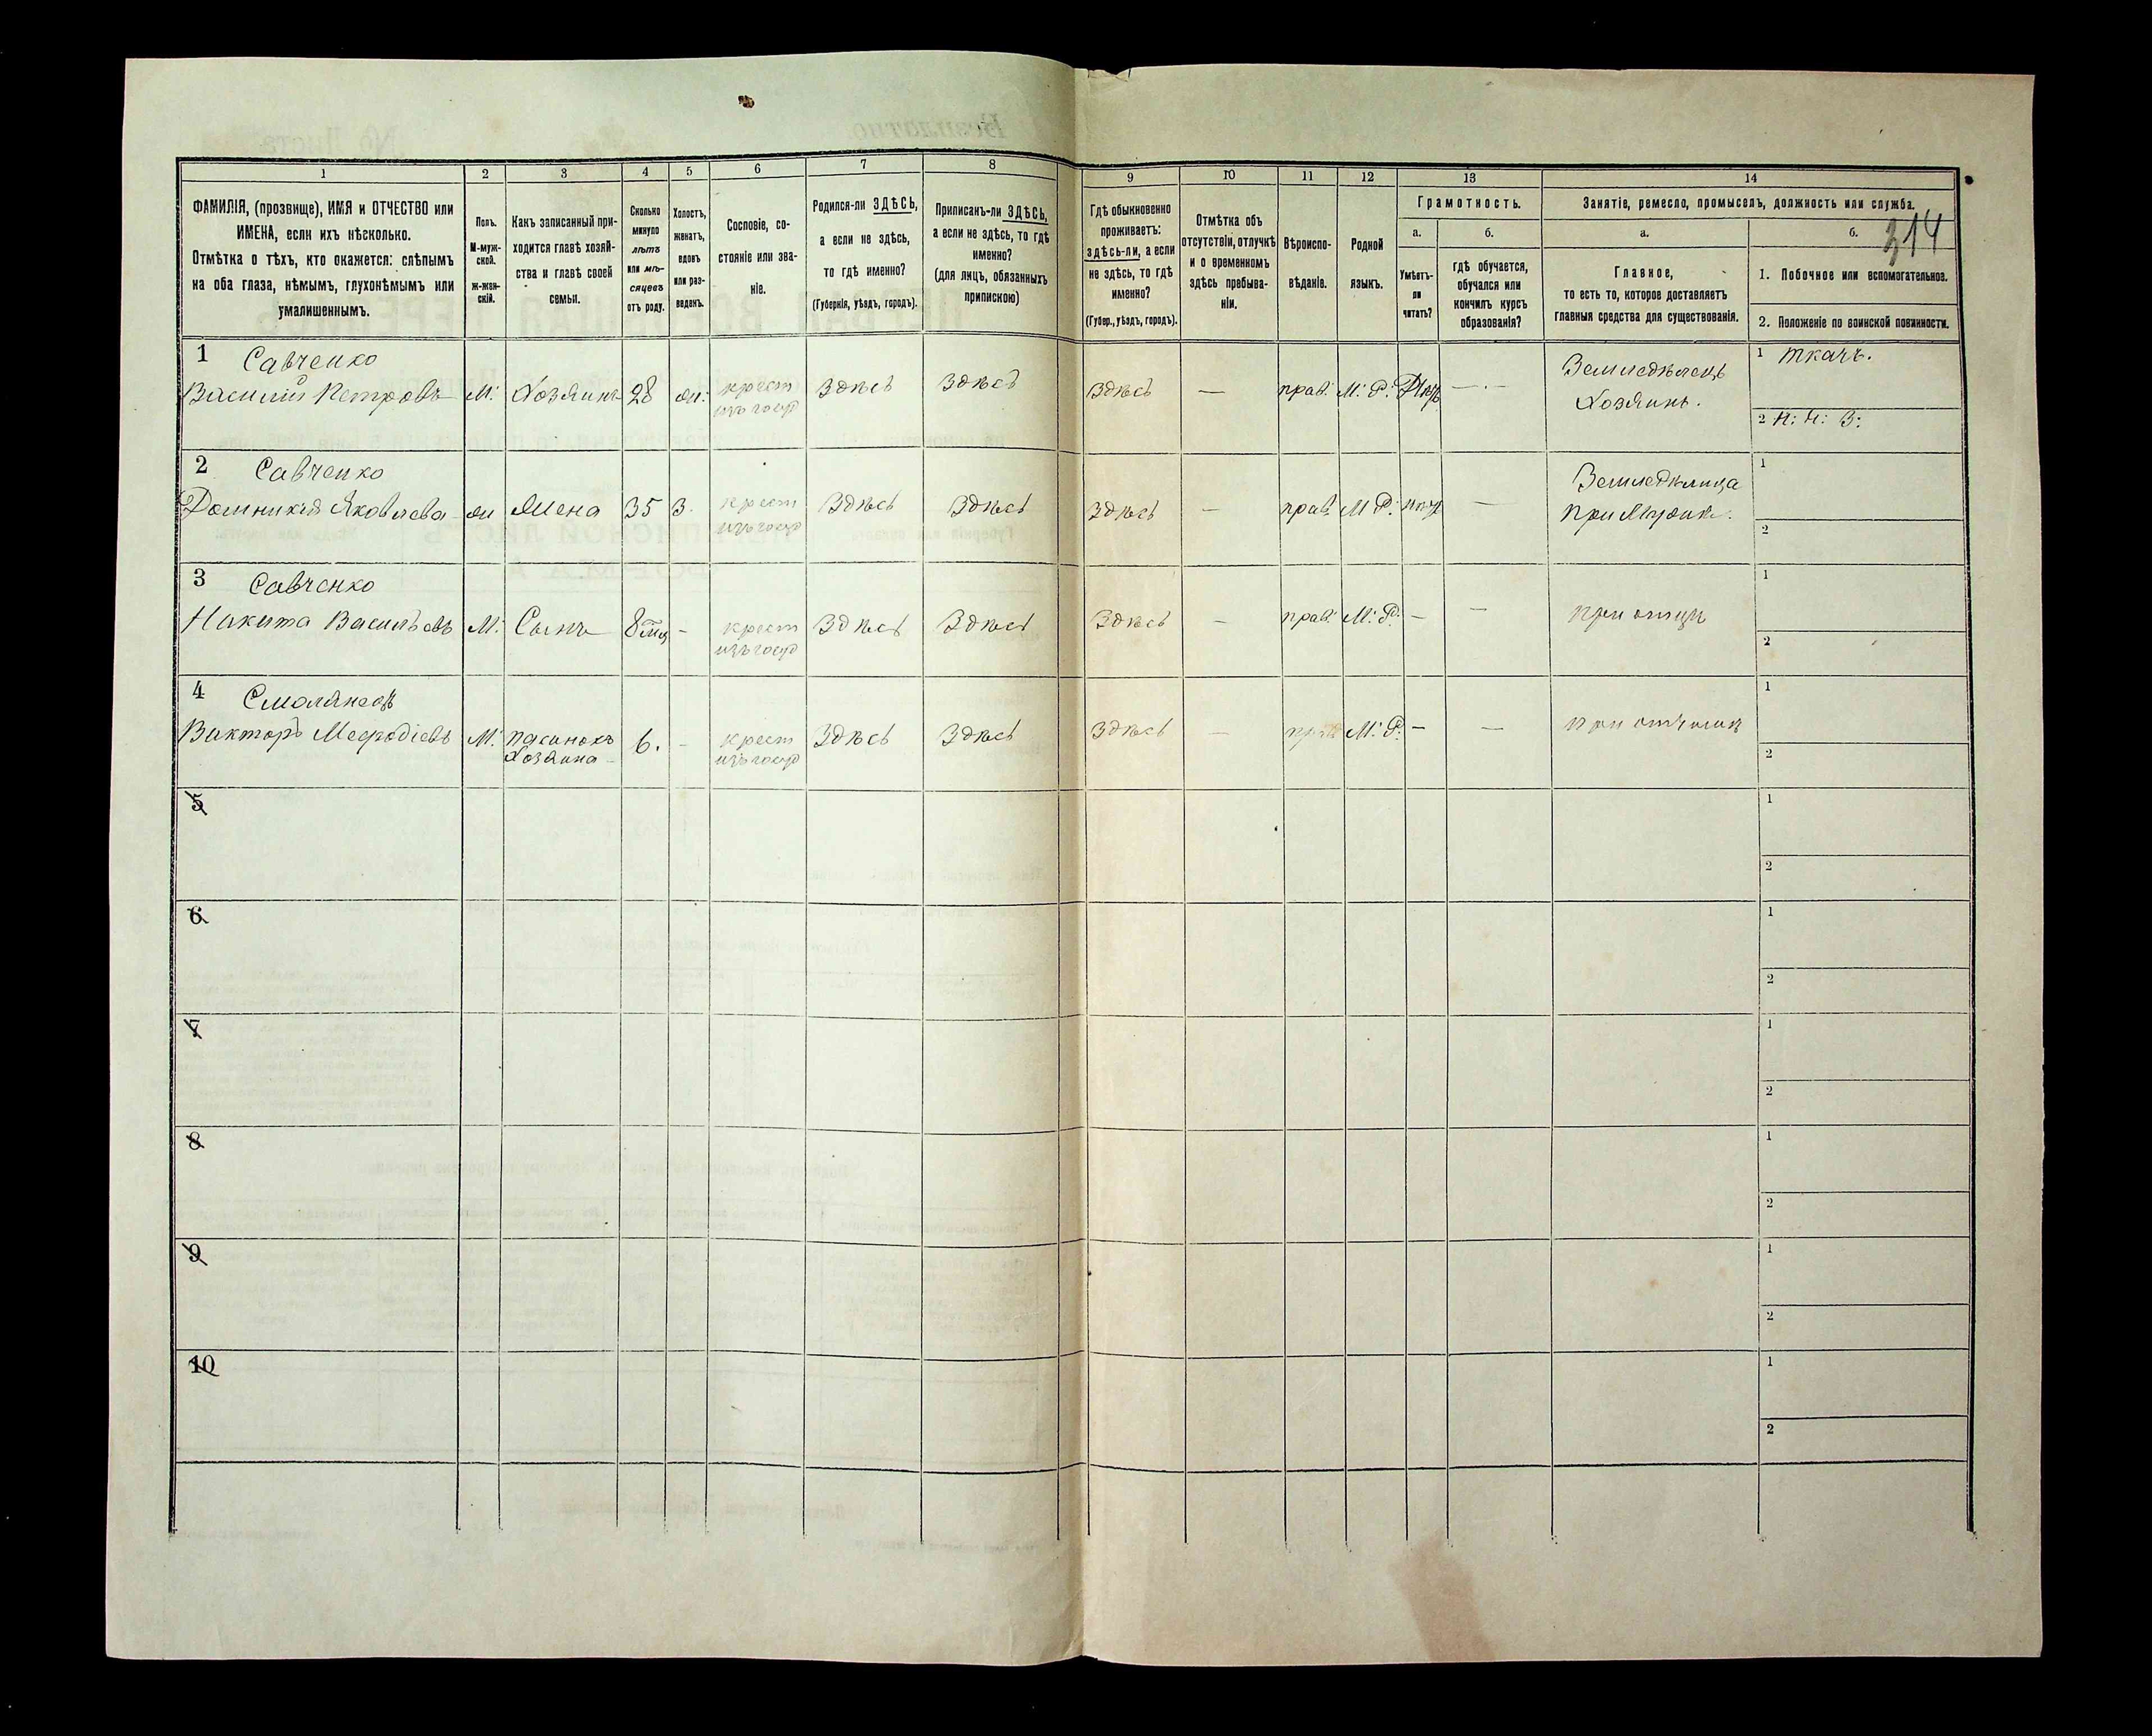 314
1 2 3 4 5 6 7 8 9 10 11 12 13 14
ФАМИЛІЯ, (прозвище), ИМЯ и ОТЧЕСТВО или
ИМЕНА, если ихъ нѣсколько.
Отмѣтка о тѣхъ, кто окажется: слѣпымъ
на оба глаза, нѣмымъ, глухонѣмымъ или
умалишеннымъ.
Полъ.
М-муж-
ской.
ж-жен-
скій.
Какъ записанный при-
ходится главѣ хозяй-
ства и главѣ своей
семьи.
Сколько
минуло
лѣтъ
или мѣ-
сяцевъ
отъ роду.
Холостъ,
женатъ,
вдовъ
или раз-
веденъ.
Сословіе, со-
стояніе или зва-
ніе.
Родился-ли ЗДѢСЬ,
а если не здѣсь,
то гдѣ именно?
(Губернія, уѣздъ, городъ).
Приписанъ-ли ЗДѢСЬ,
а если не здѣсь, то гдѣ
именно?
(для лицъ, обязанныхъ
припискою)
Гдѣ обыкновенно
проживаетъ:
здѣсь-ли, а если
не здѣсь, то гдѣ
именно?
(Губер., уѣздъ, городъ).
Отмѣтка объ
отсутствіи, отлучкѣ
и о временномъ
здѣсь пребыва-
ніи.
Вѣроиспо-
вѣданіе.
Родной
языкъ.
Грамотность.
а.
Умѣетъ-
ли
читать?
б.
гдѣ обучается,
обучался или
кончилъ курсъ
образованія?
Занятіе, ремесло, промыселъ, должность или служба.
а.
Главное,
то есть то, которое доставляетъ
главныя средства для существованія.
б.
1. Побочное или вспомогательное.
2. Положеніе по воинской повинности.
1 Савченко
Василій Петровъ М: Хозяинъ 28 ж: крест Здѣсь Здѣсь Здѣсь — прав: М: Р: —
изъ госуд
Земледѣлецъ
Хозяинъ.
1 Ткачъ.
2 Н: Ч: З:
2 Савченко
Домникія Яковлева ж Жена 35 З. крест Здѣсь Здѣсь Здѣсь — прав: М Р: —
изъ госуд
Земледѣлица
при Мужѣ.
1
2
3 Савченко
Никита Васильевъ М: Сынъ 8 мц - крест Здѣсь Здѣсь Здѣсь — прав: М: Р: — —
изъ госуд
при отцѣ
1
2
4 Смолянецъ
Викторъ Мефодіевъ М: пасынокъ 6. - крест Здѣсь Здѣсь Здѣсь — прав М: Р: — —
Хозяина
изъ госуд
при отчимѣ
1
2
5
1
2
6
1
2
7
1
2
8
1
2
9
1
2
10
1
2